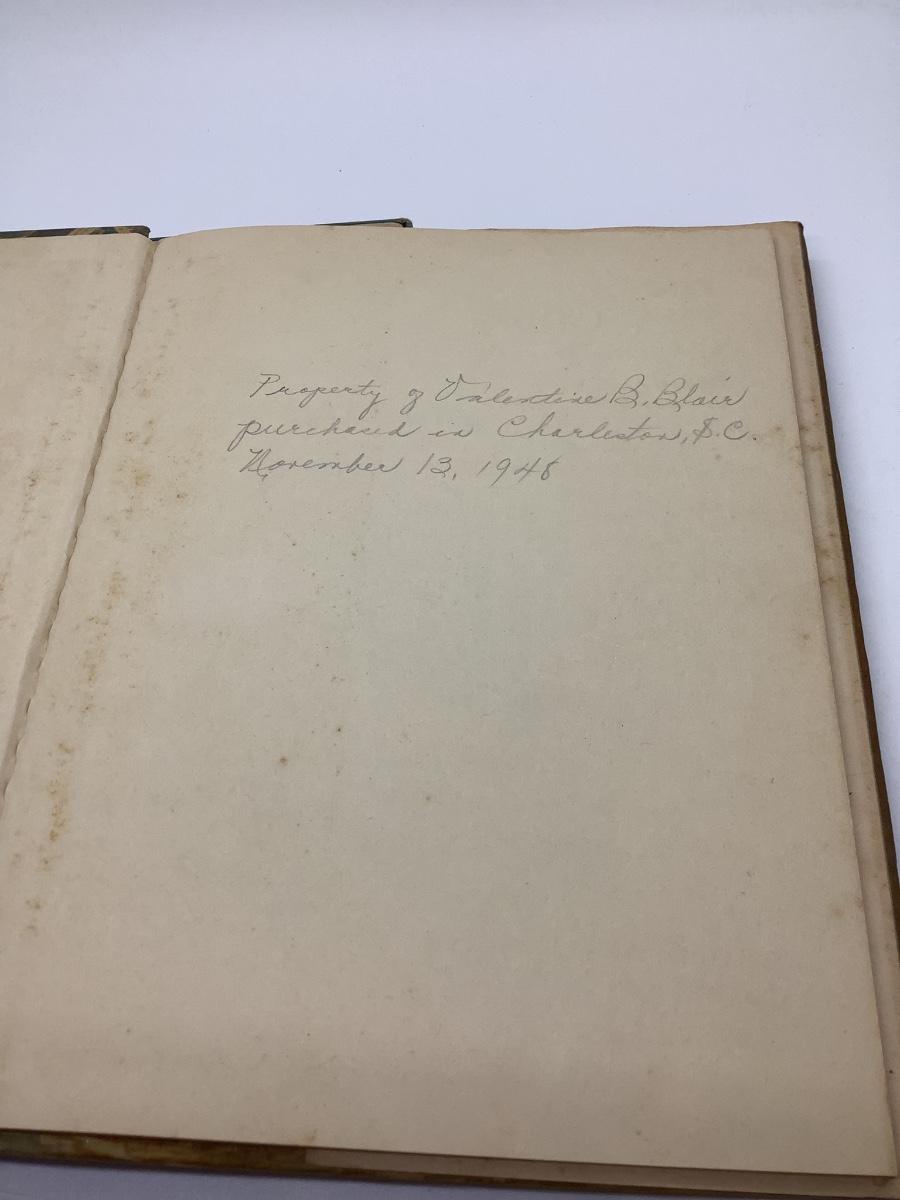 Property of Valentine B. Blair
purchased in Charleston, S.C.
November 13, 1948